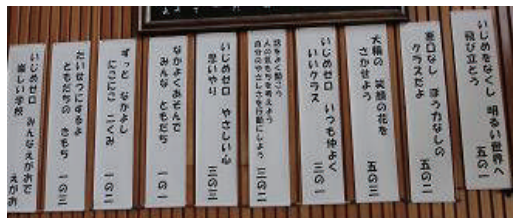 いじめをなくし 明るい世界へ
飛び立とう 五の一
悪口なし ぼう力なしの
クラスだよ 五の二
大輪の 笑顔の花を
さかせよう 五の三
いじめゼロ いつも仲よく
いいクラス 三の一
話をよく聞こう
人の気もちを考えよう
自分のやさしさを行動にしよう 三の二
いじめゼロ やさしい心
思いやり 三の三
なかよくあそんで
みんな ともだち 一の一
ずっと なかよし
にこにこ 二くみ 一の二
たいせつにするよ
ともだちの きもち 一の三
いじめゼロ みんなえがおで
楽しい学校 えがお